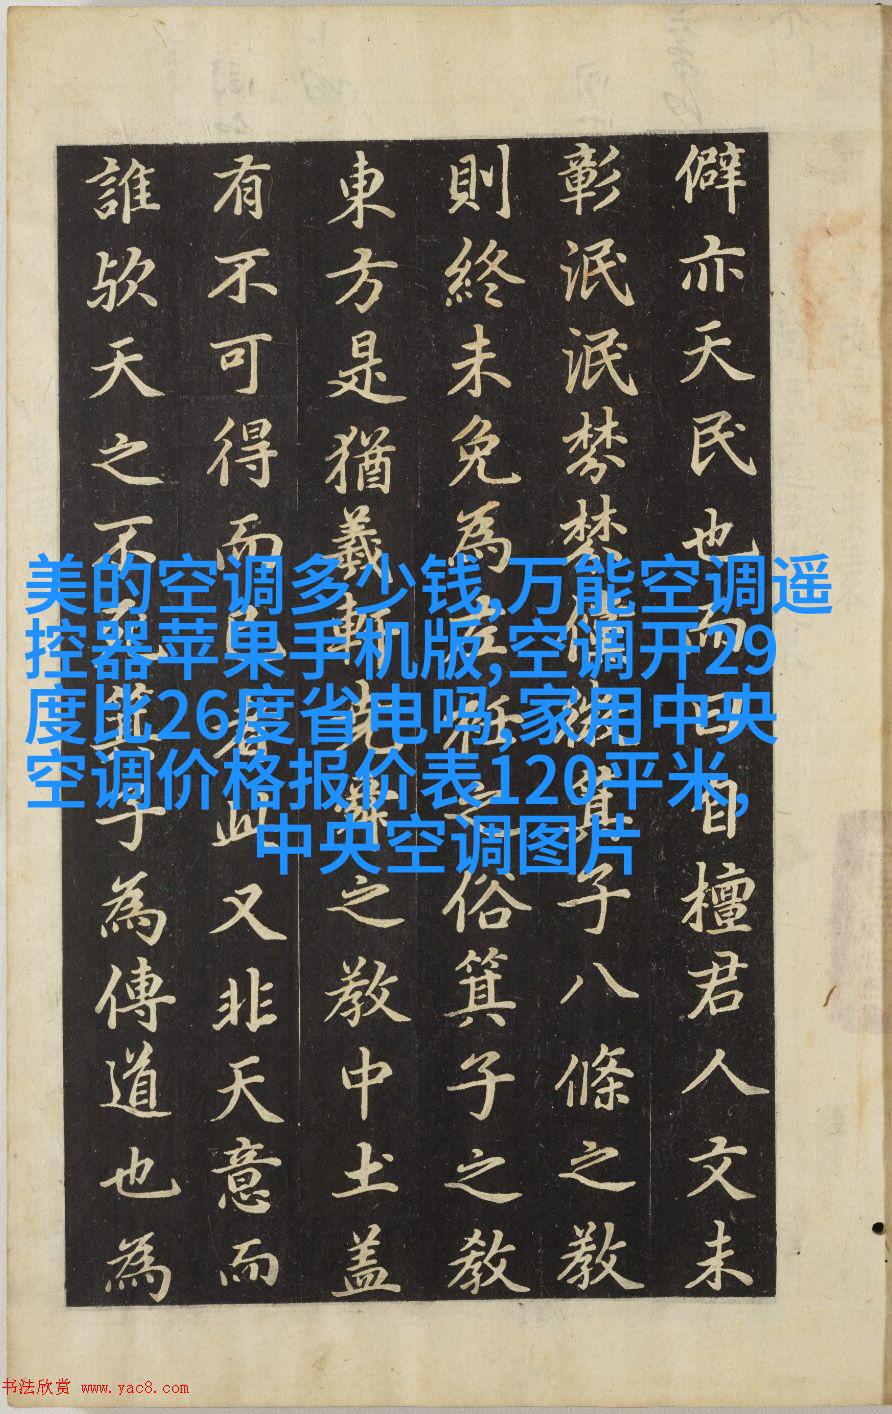 僻亦天民也而曰自檀君人文未
彰泯泯棼棼微箕子八條之教
則終未免為左衽之俗箕子之教
東方是猶羲軒堯舜之教中土盖
有不可得而已者此又非天意而
誰歟天之不死箕子為傳道也為
美的空调多少钱,万能空调遥
控器苹果手机版,空调开29
度比26度省电吗,家用中央
空调价格报价表120平米,
中央空调图片
书法欣赏 www.yac8.com